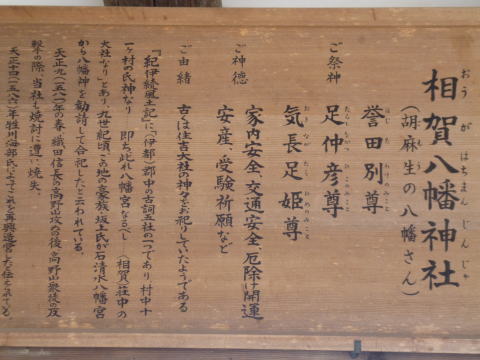 相賀八幡神社
おうが はちまん じんじゃ
(胡麻生の八幡さん)
ご祭神
誉田別尊
足仲彦尊
気長足姫尊
ご神徳
家内安全、交通安全、厄除け開運
安産、受験祈願など
ご由緒
古くは住吉大社の神々をお祀りしていたようである
『紀伊続風土記』に、「伊都郡中の古詞五社の一つであり、村中十
一ヶ村の氏神なり 即ち此れ八幡宮なるべし (相賀)荘中の
大社なり」とあり、九世紀頃この地の豪族、坂上氏が石清水八幡宮
から八幡神を勧請して合祀したと云われている。
天正九(一五八一)年の春、織田信長の高野山攻めの後、高野山衆徒の反
撃の際、当社も焼討に遭い焼失、